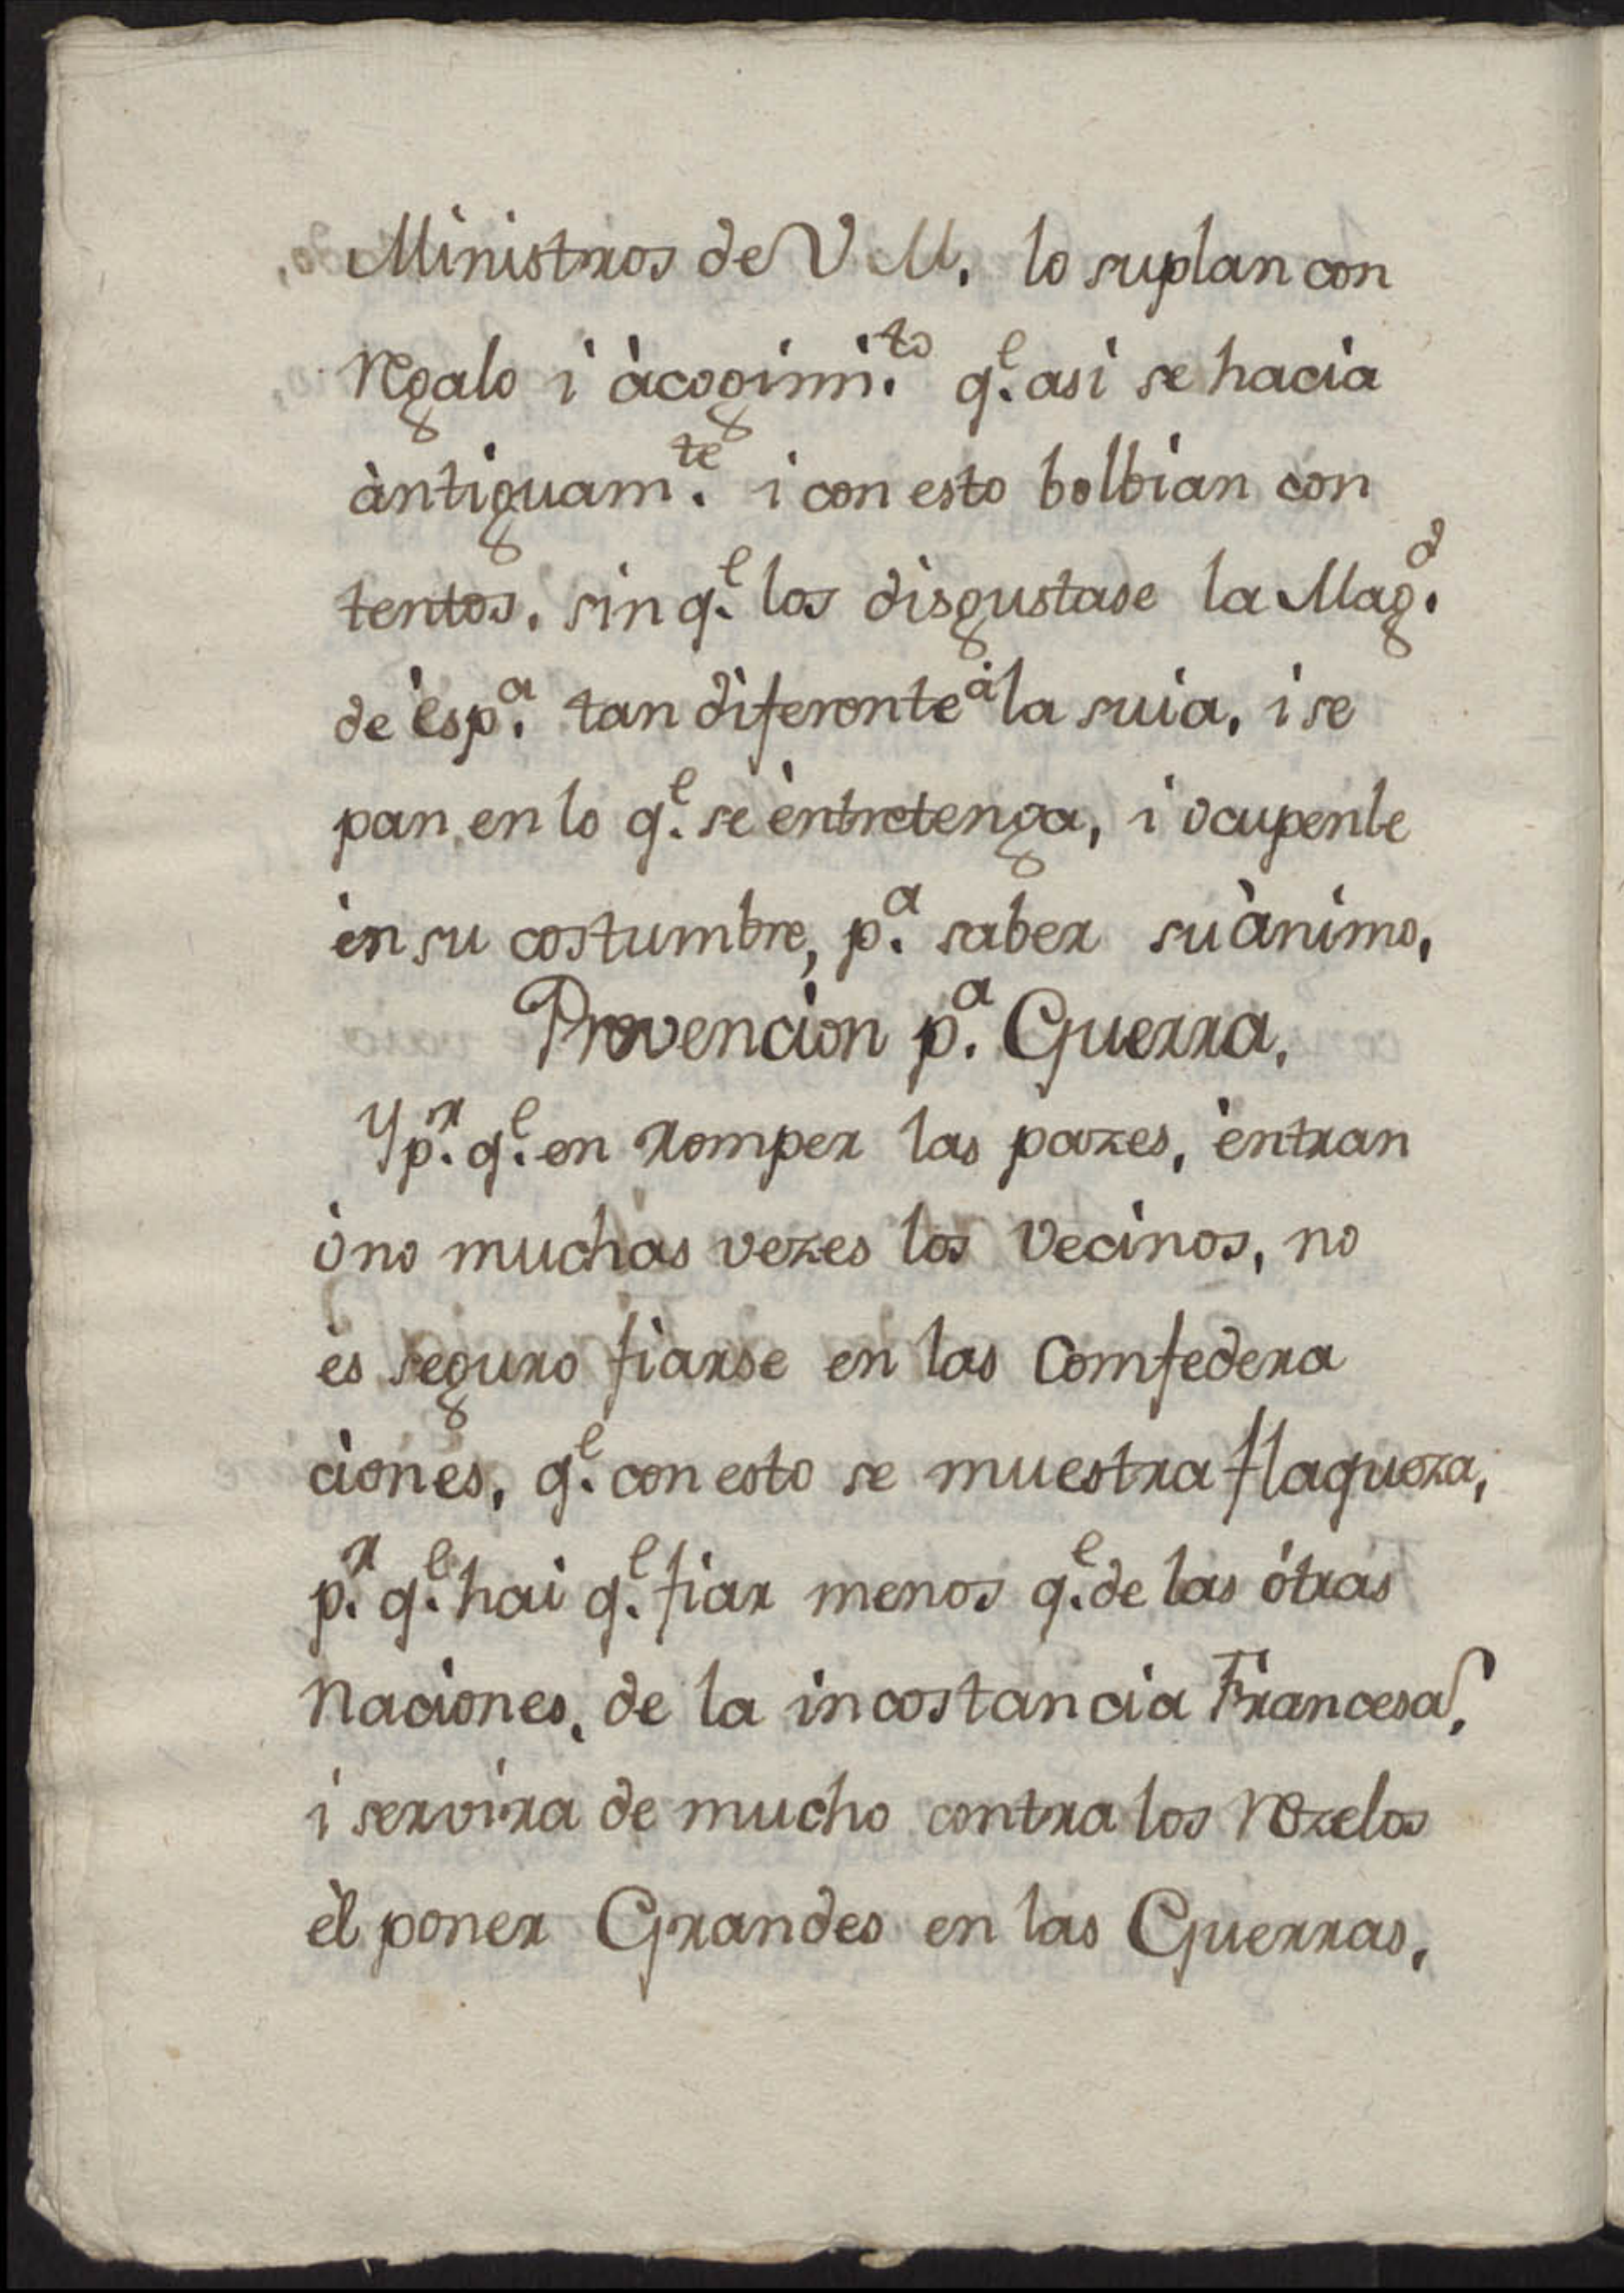 Ministros de V M. lo suplan con
regalo i àcogimi.to q.e asi se hacia
àntiguam.te i con esto bolbian con
tentos. sin q.e los disgustase la Mag.d
de èsp.a tan diferente à la suia, i se
pan en lo q.e se èntretenga, i ocupenle
èn su costumbre, p.a saber su ànimo,
Prevencion p.a Guerra.
Y p.r q.e en romper las pazes, èntran
òno muchas vezes los vecinos, no
es seguro fiarse en las Comfedera
ciones, q.e con esto se muestra flaqueza,
p.r q.e hai q.e fiar menos q.e de las òtras
Naciones, de la incostancia Francesa,
i servira de mucho contra los rezelos
èl poner Grandes en las Guerras.